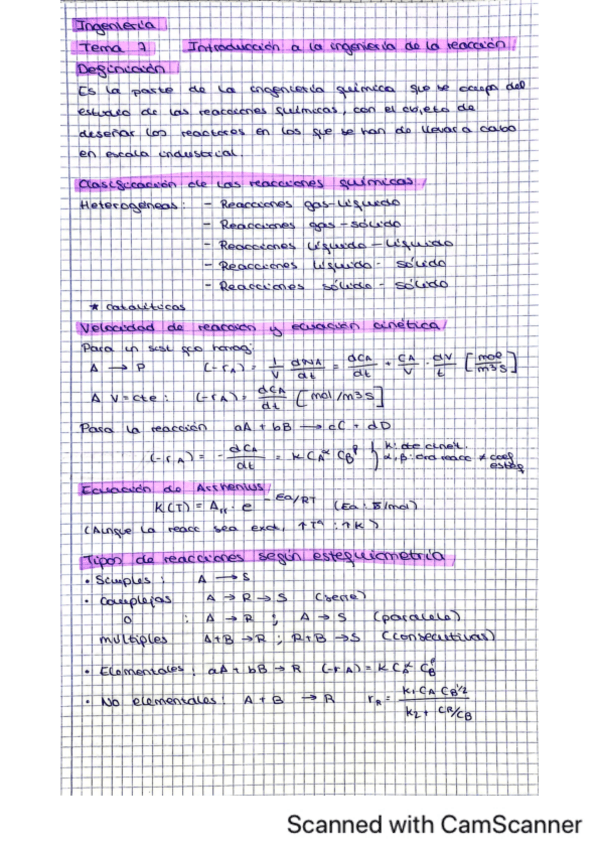 Ingeniería
Tema 7 Introducción a la ingeniería de la reacción
Definición
Es la parte de la ingeniería química que se ocupa del
estudio de las reacciones químicas, con el objeto de
deseñar los reactores en los que se han de llevar a cabo
en escala industrial.
Clasificación de las reacciones químicas
Heterogéneas: - Reacciones gas-líquido
- Reacciones gas-sólido
- Reacciones líquido-líquido
- Reacciones líquido-sólido
- Reacciones sólido-sólido
* catalíticas
Velocidad de reacción y ecuación cinética
Para un sist homog:
A → P (-rA) = 1/V dNA/dt = dCA/dt + CA/V · dV/t [mol/m3s]
A V=cte: (-rA) = dCA/dt [mol/m3s]
Para la reacción aA + bB → cC + dD
(-rA) = - dCA/dt = k CA^α CB^β } k: cte cinét. α, β: ord reacc ≠ coef esteq
Ecuación de Arrhenius
K(T) = A · e^-Ea/RT (Ea: J/mol)
(Aunque la reacc sea exot, ↑Tª : ↑K)
Tipos de reacciones según estequiometría
• Simples: A → S
• Complejas A → R → S (serie)
o : A → R ; A → S (paralelo)
múltiples A+B → R ; R+B → S (consecutivas)
• Elementales: aA + bB → R (-rA) = k CA^α CB^β
• No elementales: A + B → R rR = k1 CA CB^1/2 / k2 + CR/CB
Scanned with CamScanner